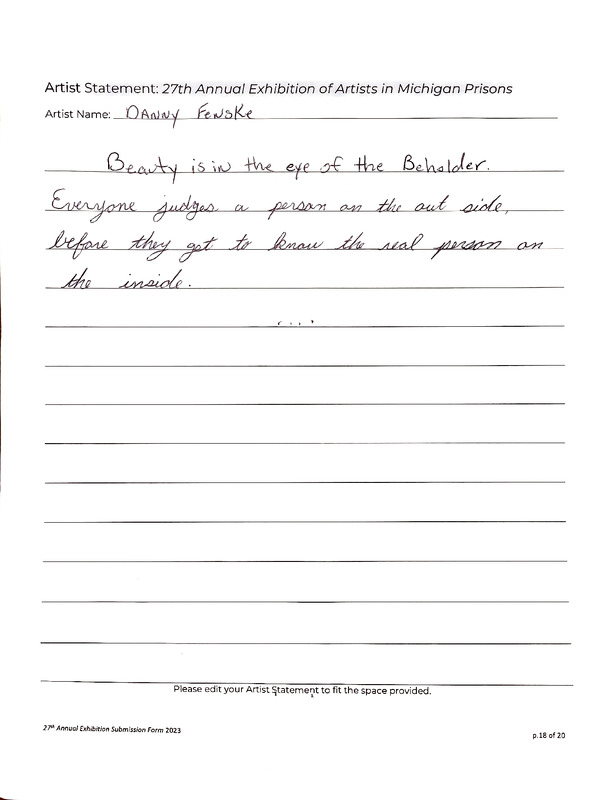 Artist Statement: 27th Annual Exhibition of Artists in Michigan Prisons
Artist Name: DANNY FENSKE
Beauty is in the eye of the Beholder.
Everyone judges a person on the out side,
before they get to know the real person on
the inside.
Please edit your Artist Statement to fit the space provided.
27th Annual Exhibition Submission Form 2023
p.18 of 20